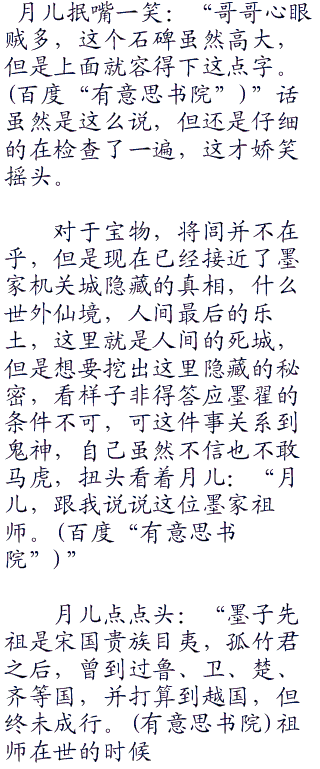 月儿抿嘴一笑：“哥哥心眼
贼多，这个石碑虽然高大，
但是上面就容得下这点字。
(百度“有意思书院”)”话
虽然是这么说，但还是仔细
的在检查了一遍，这才娇笑
摇头。
对于宝物，将闾并不在
乎，但是现在已经接近了墨
家机关城隐藏的真相，什么
世外仙境，人间最后的乐
土，这里就是人间的死城，
但是想要挖出这里隐藏的秘
密，看样子非得答应墨翟的
条件不可，可这件事关系到
鬼神，自己虽然不信也不敢
马虎，扭头看着月儿：“月
儿，跟我说说这位墨家祖
师。(百度“有意思书
院”)”
月儿点点头：“墨子先
祖是宋国贵族目夷，孤竹君
之后，曾到过鲁、卫、楚、
齐等国，并打算到越国，但
终未成行。(有意思书院)祖
师在世的时候